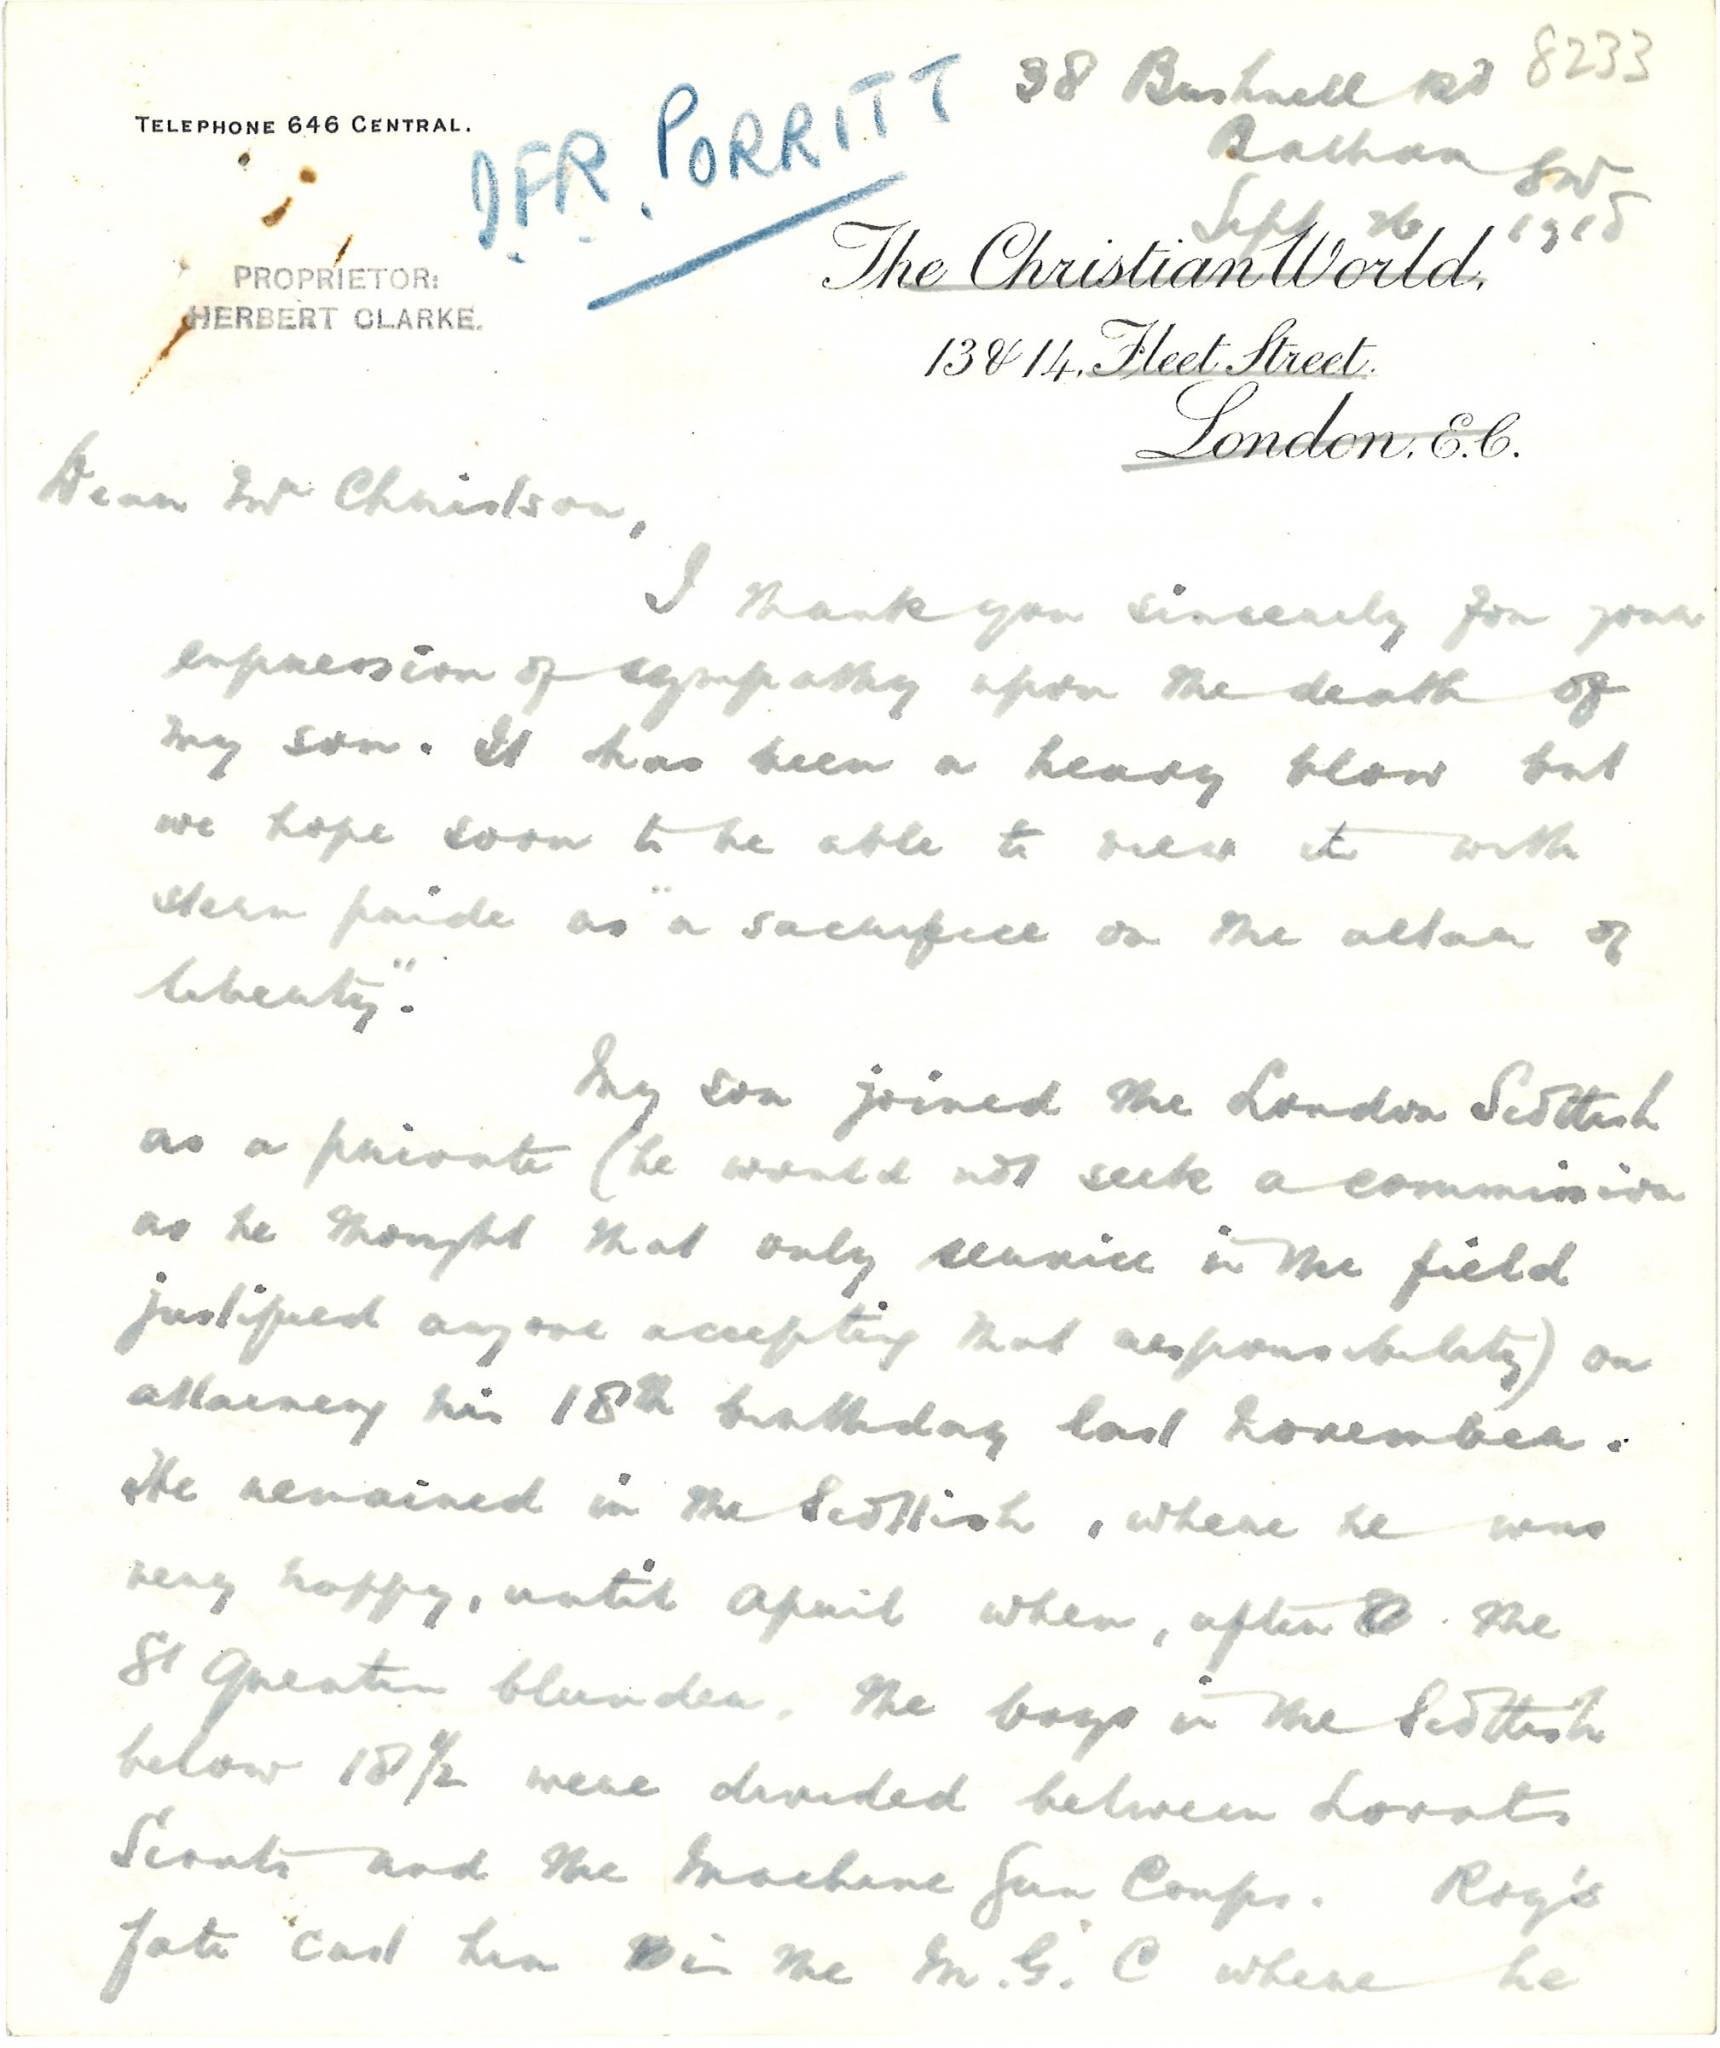 8233
38 Bushnell Rd
TELEPHONE 646 CENTRAL.
J.F.R. PORRITT
Balham SW
Sept 26 1918
PROPRIETOR:
HERBERT CLARKE.
The Christian World,
13 & 14, Fleet Street.
London, E.C.
Dear Mr Christson,
I thank you sincerely for your
expression of sympathy upon the death of
my son. It has been a heavy blow but
we hope soon to be able to view it with
stern pride as "a sacrifice on the altar of
liberty".
My son joined the London Scottish
as a private (he would not seek a commission
as he thought that only service in the field
justified anyone accepting that responsibility) on
attaining his 18th birthday last November.
He remained in the Scottish, where he was
very happy, until April when, after the
St Quentin blunder, the boys in the Scottish
below 18 1/2 were divided between Lovats
Scouts and the Machine Gun Corps. Roy's
fate cast him in the M.G.C where he